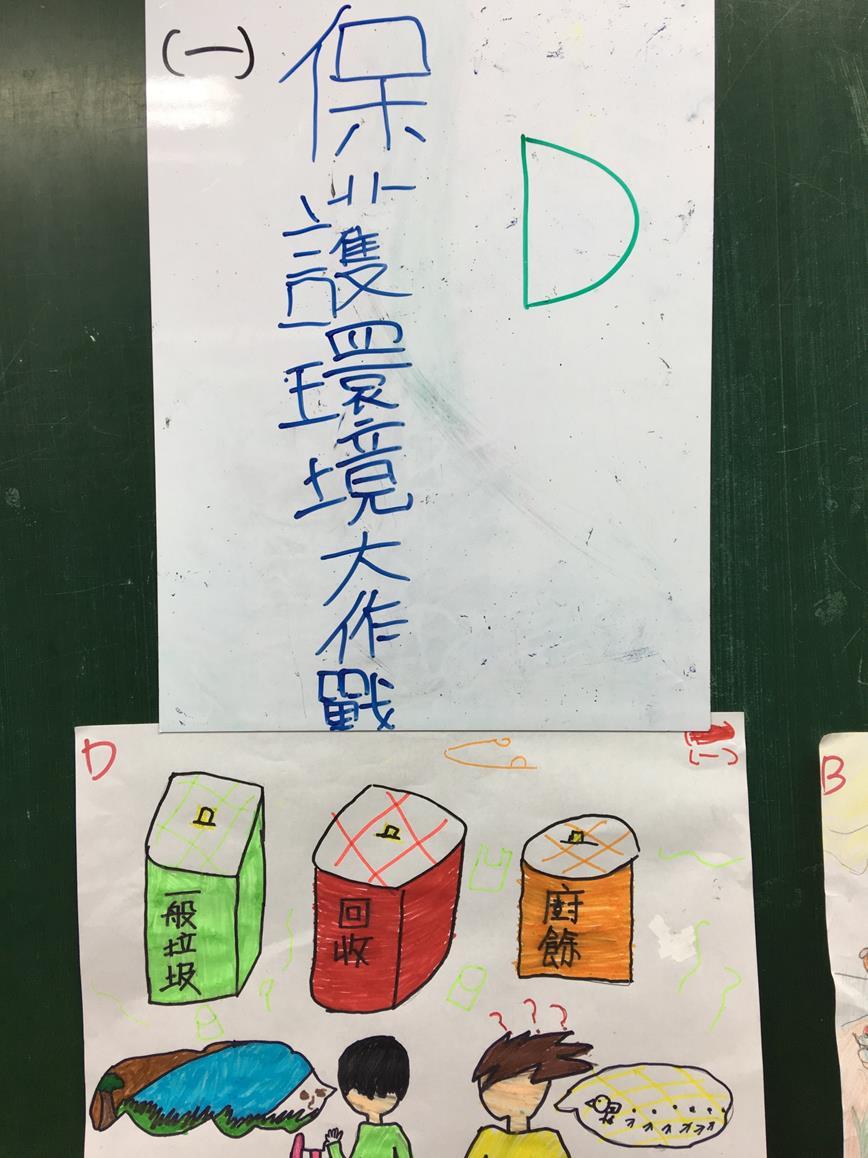 (一)
保護環境大作戰
D
D
(一)
一般垃圾
回收
廚餘
? ? ?
B